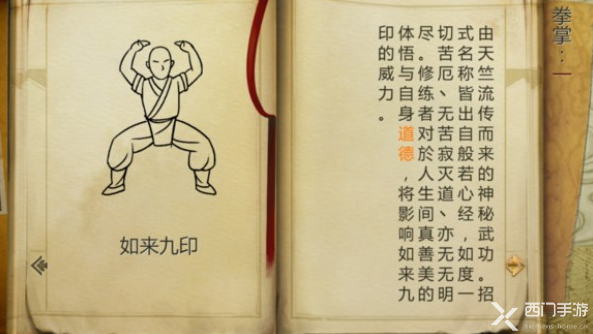 拳掌：一
由天竺流传而来的神秘武功。招
式名称皆出自般若心经，如度一
切苦厄、无苦寂灭道、亦无无明
尽。修练者对於人生间真善美的
体悟与自身道德，将影响如来九
印的威力。
如来九印
西门手游